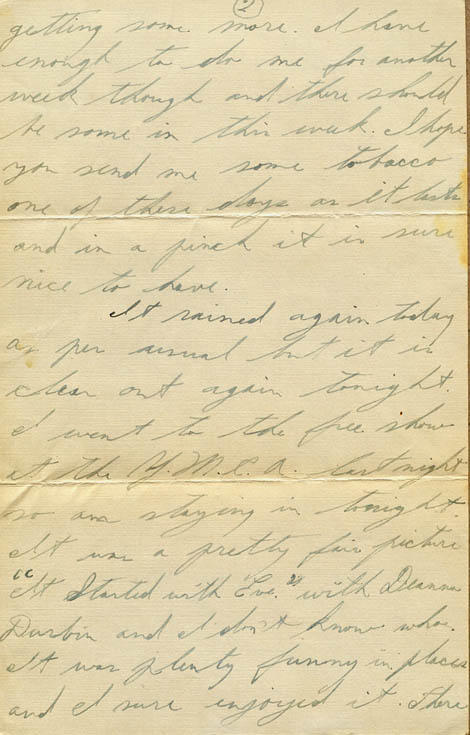 2
getting some more. I have
enough to do me for another
week though and there should
be some in this week. I hope
you send me some tobacco
one of these days as it lasts
and in a pinch it is sure
nice to have.
It rained again today
as per usual but it is
clear out again tonight.
I went to the free show
at the Y.M.C.A. last night
so am staying in tonight.
It was a pretty fair picture
"It Started with Eve." with Deanna
Durbin and I don't know who.
It was plenty funny in places
and I sure enjoyed it. There